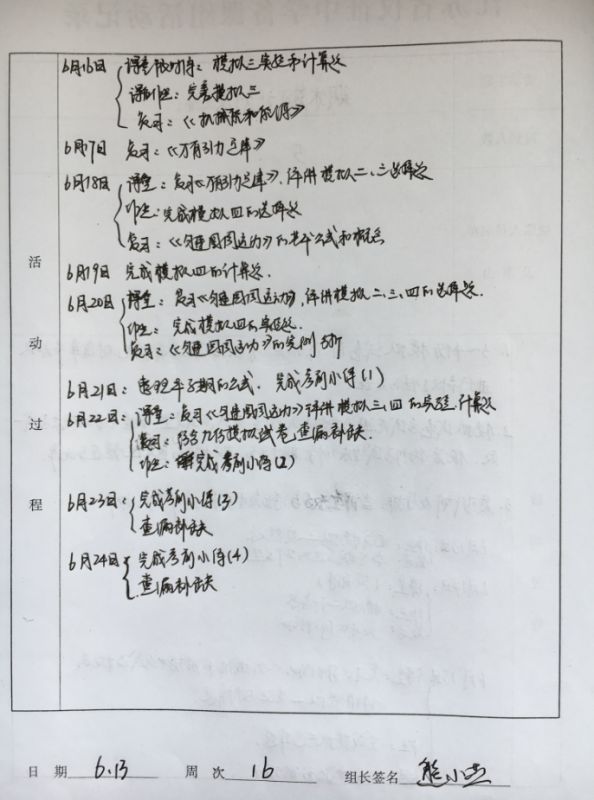 6月16日 课堂 : 模拟三实验和计算题
课外作业: 完善模拟三
复习:《机械能和能源》
6月17日 复习:《万有引力定律》
6月18日 课堂:复习《万有引力定律》,评讲模拟二、三选择题
作业:完成模拟四的选择题
复习:《匀速圆周运动》的基本公式和概念
6月19日 完成模拟四的计算题.
6月20日 课堂:复习《匀速圆周运动》,评讲模拟二、三、四的选择题.
作业:完成模拟四的实验题.
复习:《匀速圆周运动》的实例分析
6月21日: 整理本学期的公式. 完成考前小练(1)
6月22日:课堂:复习《匀速圆周运动》评讲模拟三、四的实验,计算题
复习:仔细几份模拟试卷,查漏补缺.
作业:完成考前小练(2)
6月23日:完成考前小练(3)
查漏补缺
6月24日 完成考前小练(4)
查漏补缺
活动过程
日 期 6.13 周 次 16 组长签名 熊小